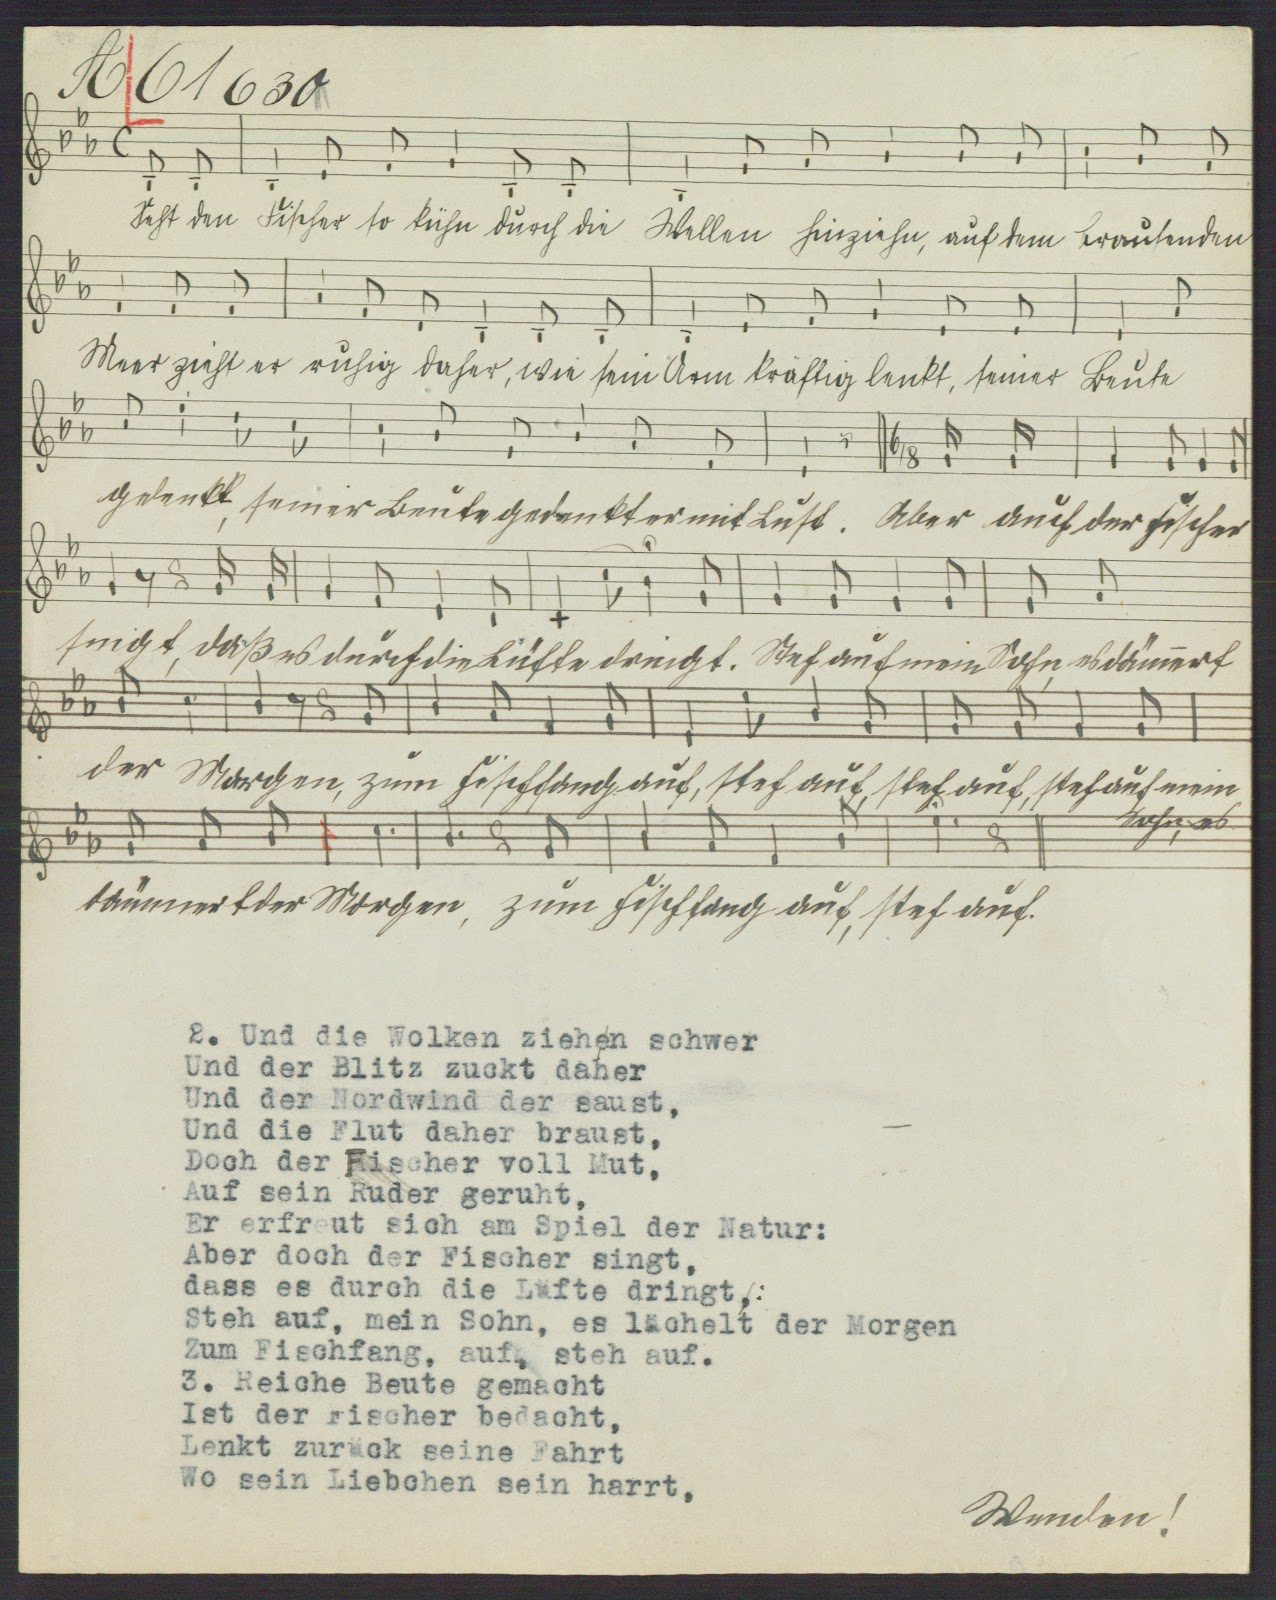 A 61 630
Seht den Fischer so kühn durch die Wellen hinziehn, auf dem brausenden
Meer zieht er ruhig daher, wie sein Arm kräftig lenkt, seiner Beute
gedenkt, seiner Beute gedenkt er mit Lust. Aber auch der Fischer
singt, daß es durch die Lüfte dringt. Steh auf mein Sohn, es däm̄ert
der Morgen, zum Fischfang auf, steh auf, steh auf, steh auf mein
Sohn, es
dämmert der Morgen, zum Fischfang auf, steh auf.
2. Und die Wolken ziehen schwer
Und der Blitz zuckt daher
Und der Nordwind der saust,
Und die Flut daher braust,
Doch der Fischer voll Mut,
Auf sein Ruder geruht,
Er erfreut sich am Spiel der Natur:
Aber doch der Fischer singt,
dass es durch die Lüfte dringt,:
Steh auf, mein Sohn, es lächelt der Morgen
Zum Fischfang, auf, steh auf.
3. Reiche Beute gemacht
Ist der Fischer bedacht,
Lenkt zurück seine Fahrt
Wo sein Liebchen sein harrt,
Wenden!